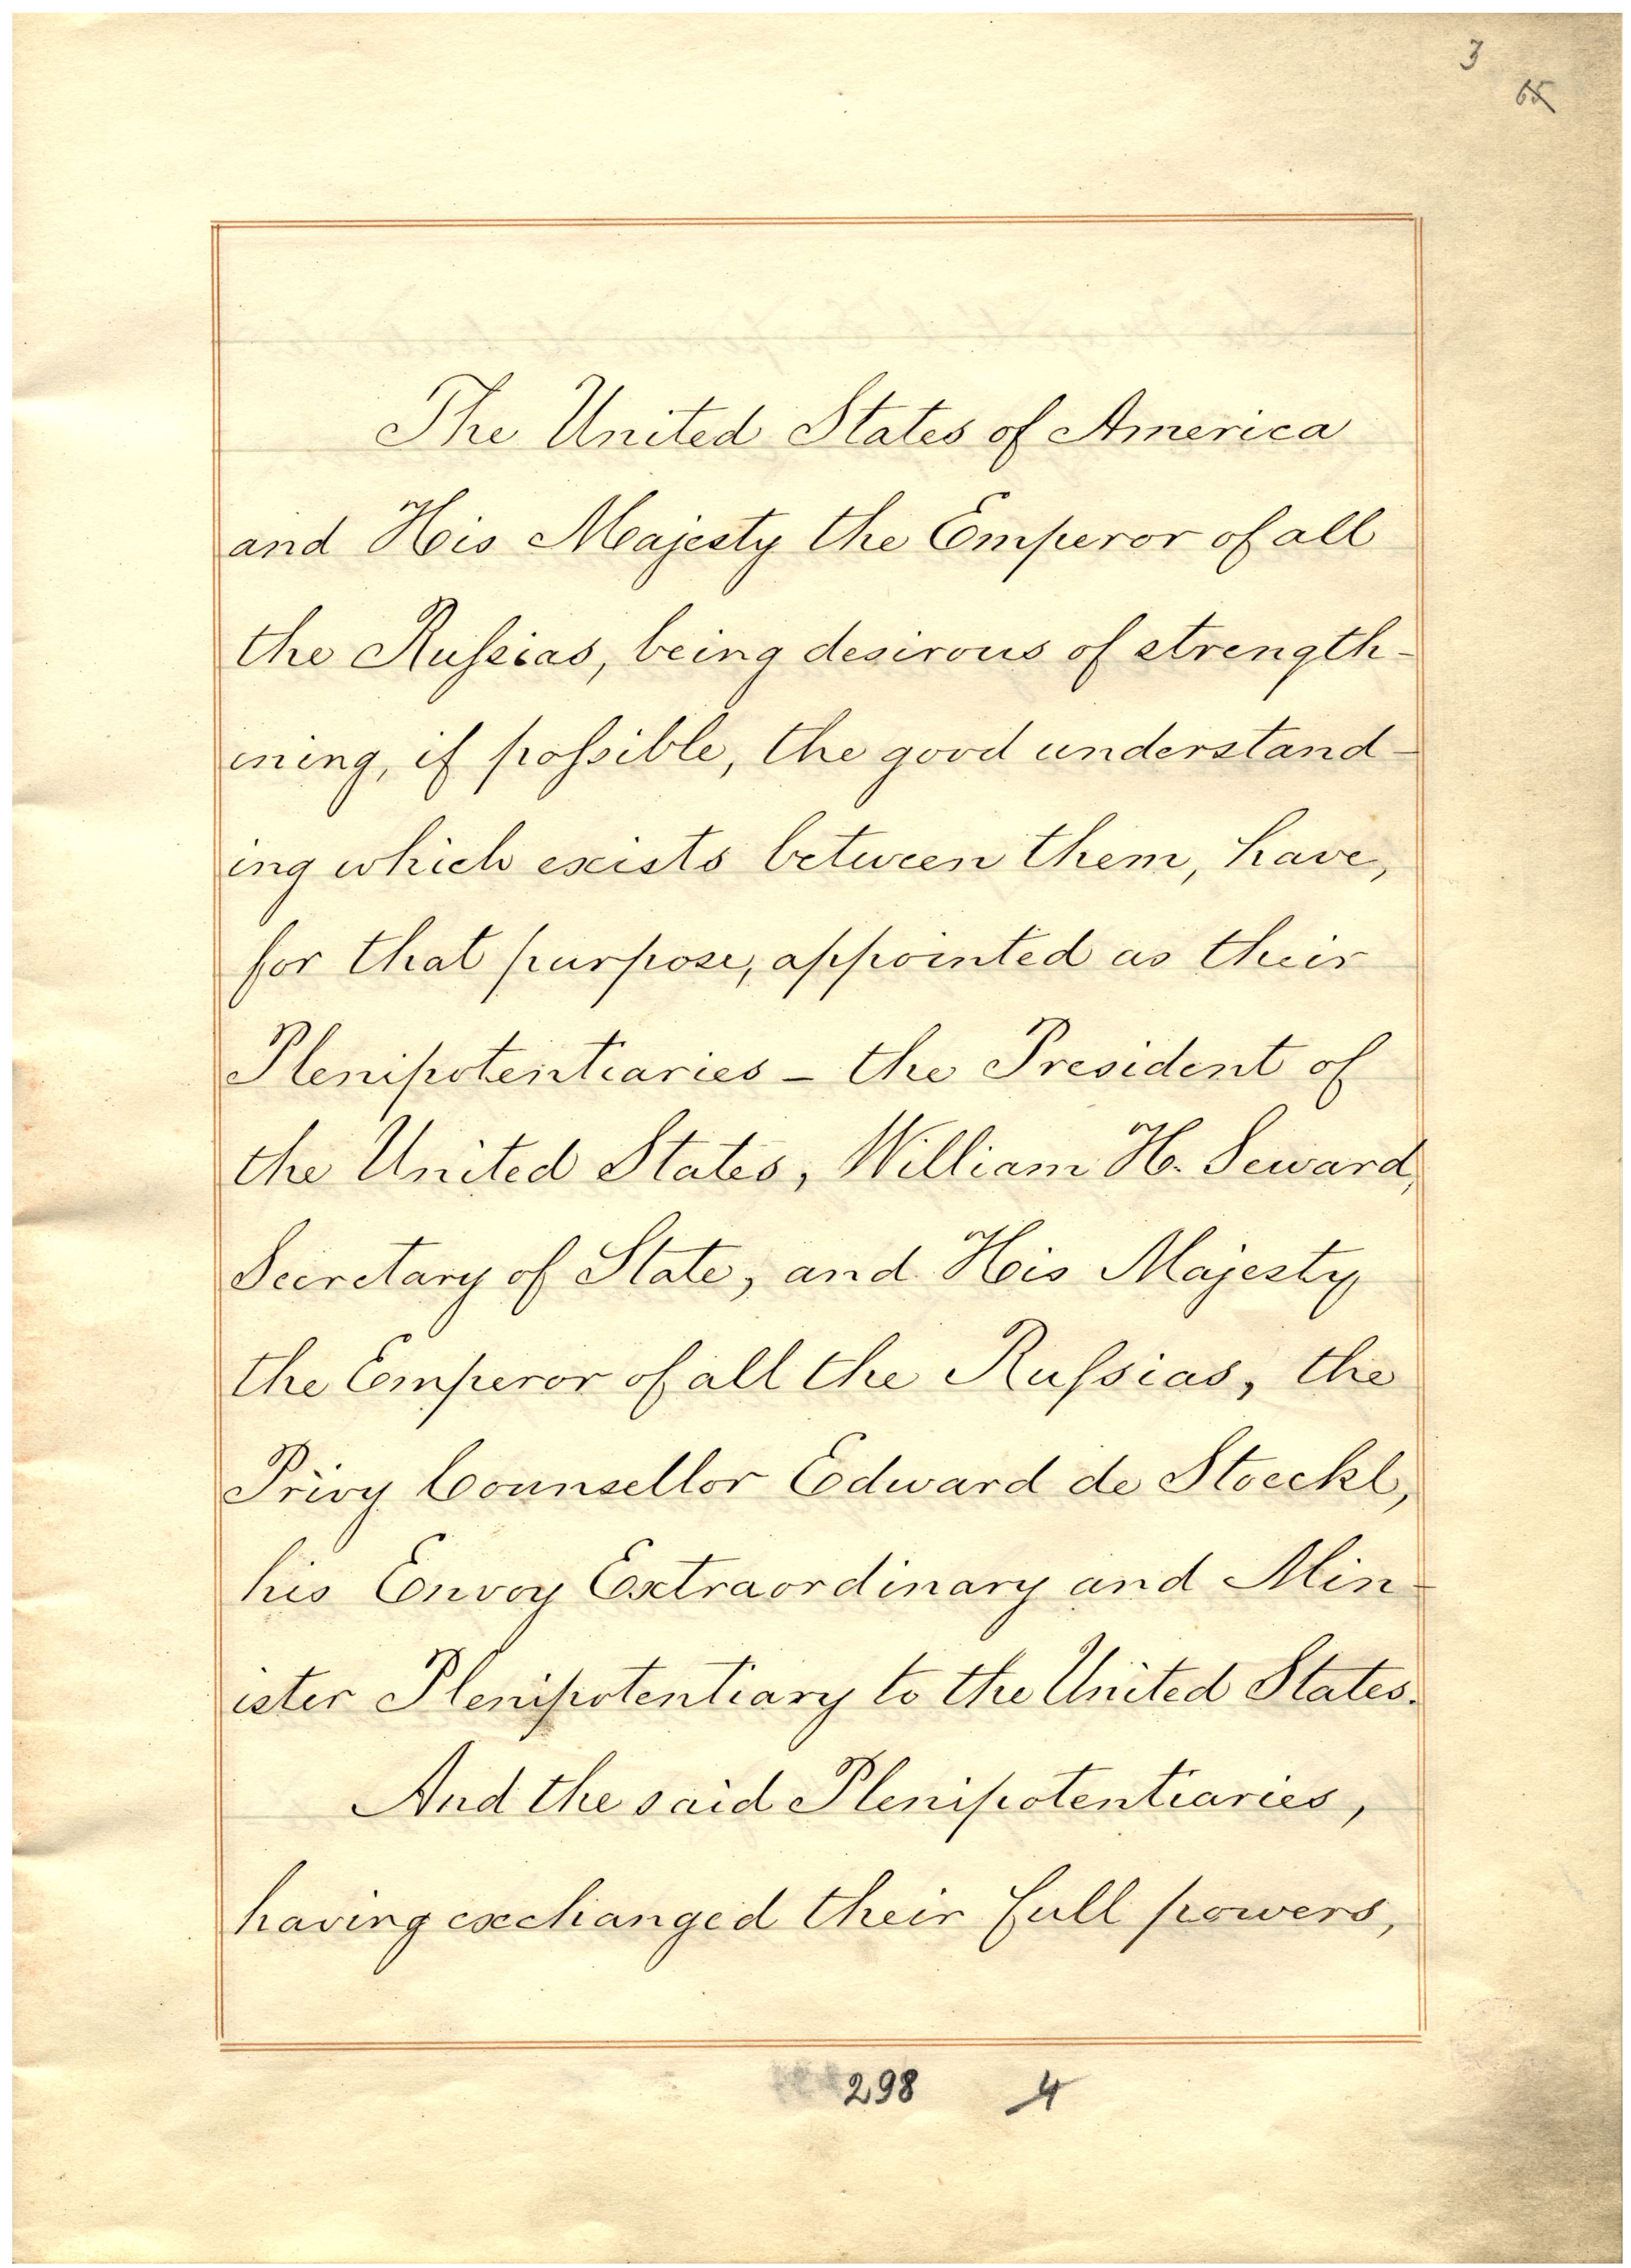 3
65
The United States of America
and His Majesty the Emperor of all
the Ruſsias, being desirous of strength-
ening, if poſsible, the good understand-
ing which exists between them, have,
for that purpose, appointed as their
Plenipotentiaries – the President of
the United States, William H. Seward,
Secretary of State, and His Majesty
the Emperor of all the Ruſsias, the
Privy Counsellor Edward de Stoeckl,
his Envoy Extraordinary and Min-
ister Plenipotentiary to the United States.
And the said Plenipotentiaries,
having exchanged their full powers,
298 4